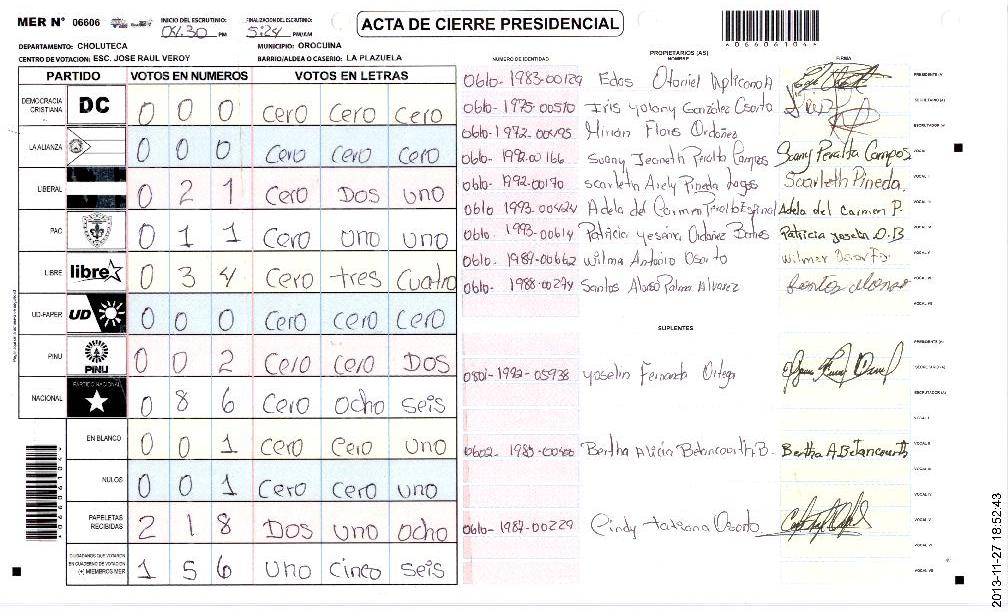 MER N° 06606 INICIO DEL ESCRUTINIO: 04.30 PM FINALIZACION DEL ESCRUTINIO: 5:24 PM/AM ACTA DE CIERRE PRESIDENCIAL
*06606104*
DEPARTAMENTO: CHOLUTECA MUNICIPIO: OROCUINA
CENTRO DE VOTACION: ESC. JOSE RAUL VEROY BARRIO/ALDEA O CASERIO: LA PLAZUELA
PARTIDO VOTOS EN NUMEROS VOTOS EN LETRAS
DEMOCRACIA CRISTIANA DC 0 0 0 Cero Cero Cero
LA ALIANZA 0 0 0 Cero Cero Cero
LIBERAL 0 2 1 Cero Dos uno
PAC 0 1 1 Cero uno uno
LIBRE libre 0 3 4 Cero tres Cuatro
UD-FAPER UD 0 0 0 Cero Cero Cero
PINU PINU 0 0 2 Cero Cero Dos
NACIONAL PARTIDO NACIONAL 0 8 6 Cero Ocho seis
EN BLANCO 0 0 1 Cero Cero uno
NULOS 0 0 1 Cero Cero uno
PAPELETAS RECIBIDAS 2 1 8 Dos uno ocho
CIUDADANOS QUE VOTARON EN CUADERNO DE VOTACION (+) MIEMBROS MER 1 5 6 uno cinco seis
NUMERO DE IDENTIDAD PROPIETARIOS (AS) NOMBRE FIRMA
0610-1983-00129 Edas Otoniel Aplicano A PRESIDENTE (A)
0610-1975-00510 Iris yolany González Osorto SECRETARIO (A)
0610-1972-00495 Mirian Flores Ordoñez ESCRUTADOR (A)
0610-1992-00166 Suany Jeaneth Peralta Campos Suany Peralta Campos VOCAL I
0610-1992-00170 Scarleth Arely Pineda Scarleth Pineda. VOCAL II
0610 1993-00424 Adela del Carmen Peralta Espinal Adela del Carmen P. VOCAL III
0610-1993-00614 Patricia yesenia Ordoñez Patricia O.B
0610-1989-00662 Wilmer Antonio Osorto Wilmer Osorto VOCAL V
0610-1988-00274 Santos Alonso Palma Alvarez Santos Alonso
SUPLENTES
PRESIDENTE (A)
0801-1992-05938 yoselin Fernanda Ortega SECRETARIO (A)
ESCRUTADOR (A)
0602-1985-00400 Bertha Alicia Betancourth B. Bertha A Betancourth VOCAL II
0610-1987-00229 Cindy tatiana Osorto VOCAL V
VOCAL VI
VOCAL VII
2013-11-27 18:52:43